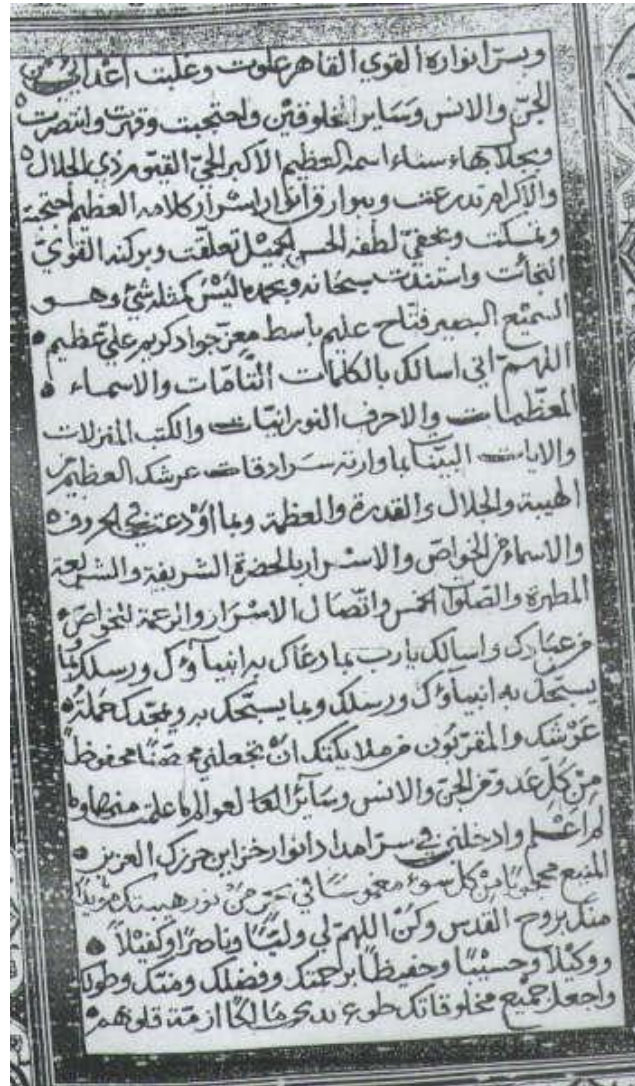 وبسر انواره القوي القاهر علوت وغلبت اعدائي من
الجن والانس وساير المخلوقين واحتجبت وقهرت وانتصرت
وبجلا بهاء سناء اسمه العظيم الاكبر الحي القيوم ذي الجلال
والاكرام تدرعت وببوارق انوار اسرار كلامه العظيم احتجبت
وتمسكت وبخفي لطفه الحسن الجميل تعلقت وبركنه القوي
التجأت واستندت سبحانه وبحمده ليس كمثله شئ وهو
السميع البصير فتاح عليم باسط معز جواد كريم علي عظيم
اللهم اني اسالك بالكلمات التامات والاسماء
المعظمات والاحرف النورانيات والكتب المنزلات
والايات البينات بما وارته سرادقات عرشك العظيم من
الهيبة والجلال والقدرة والعظمة وبما اودعته في الحروف
والاسماء من الخواص والاسرار بالحضرة الشريفة والشريعة
المطهرة والصلوات الخمس واتصال الاسرار والرحمة للخواص
من عبادك واسالك يارب بما دعاك به انبياؤك ورسلك وبما
يسبحك به انبياؤك ورسلك وبما يسبحك به ويمجدك حملة
عرشك والمقربون من ملايكتك ان تجعلني محصنا محفوظا
من كل عدو من الجن والانس وسائر العوالم ما علمت منها وما
لم اعلم وادخلني في سر امداد انوار خزاين حرزك العزيز
المنيع محجوبا من كل سوء مغموسا في بحر من نور هيبتك مؤيدا
منك بروح القدس وكن اللهم لي وليا وناصرا وكفيلا
ووكيلا وحسيبا وحفيظا برحمتك وفضلك ومنك وطولك
واجعل جميع مخلوقاتك طوع يدي مالكا ازمة قلوبهم